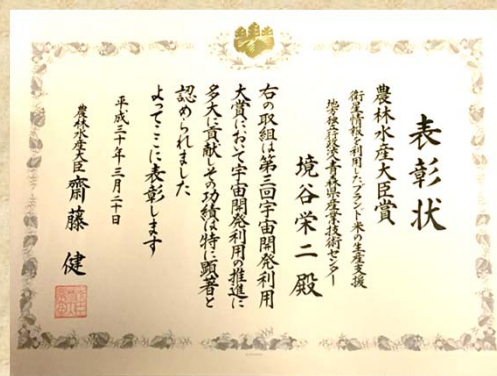 表彰状
農林水産大臣賞
衛星情報を利用したブランド米の生産支援
地方独立行政法人青森県産業技術センター
境谷栄二殿
右の取組は第三回宇宙開発利用
大賞において宇宙開発利用の推進に
多大に貢献しその功績は特に顕著と
認められました
よってここに表彰します
平成三十年三月二十日
農林水産大臣 齋藤健